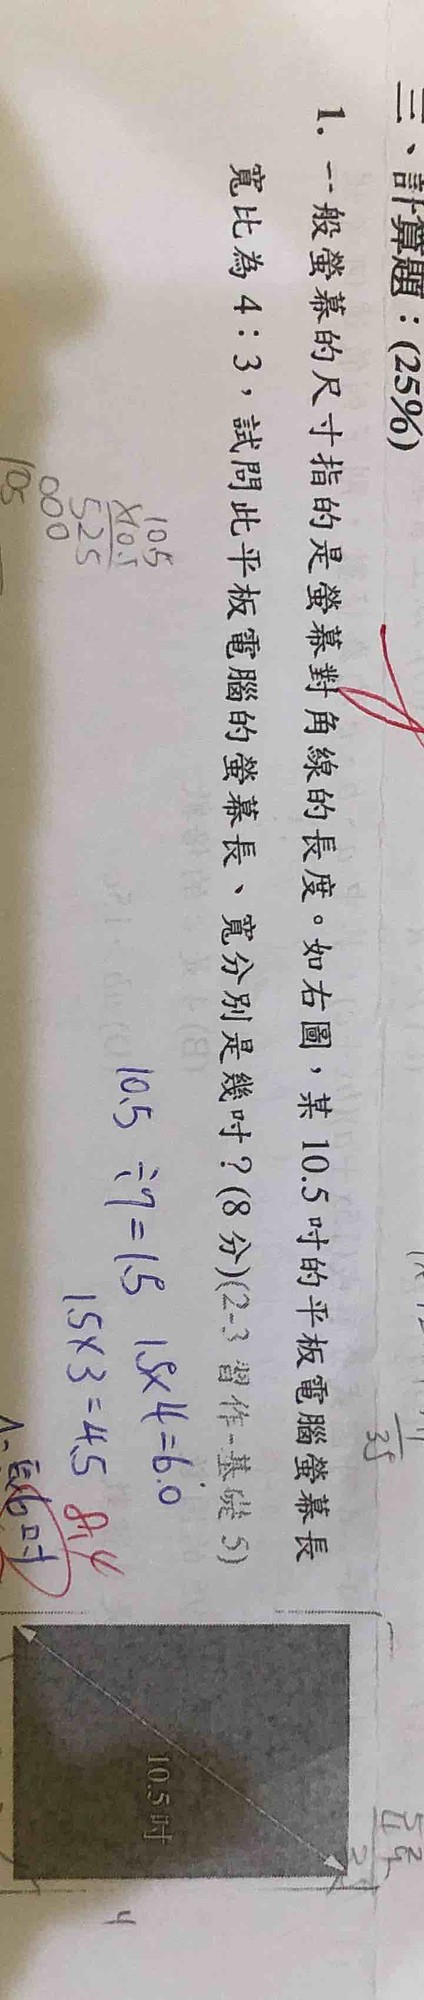 三、計算題：(25%)
1. 一般螢幕的尺寸指的是螢幕對角線的長度。如右圖，某 10.5 吋的平板電腦螢幕長
寬比為 4：3，試問此平板電腦的螢幕長、寬分別是幾吋？(8 分)(2-3 習作-基礎 5)
10.5 ÷7=1.5 1.5×4=6.0
1.5×3=4.5
8.4
A:長6吋
10.5
×10.5
525
000
105
10.5 吋
4